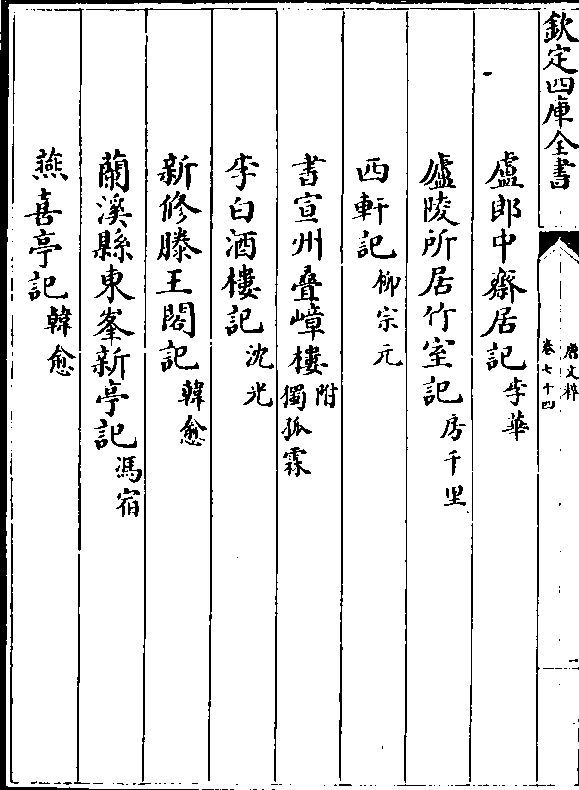 欽定四庫全書
唐文粹
卷七十四
盧郎中齋居記李華
廬陵所居竹室記房千里
西軒記柳宗元
書宣州疊嶂樓附獨孤霖
李白酒樓記沈光
新修滕王閣記韓愈
蘭溪縣東峯新亭記馮宿
燕喜亭記韓愈